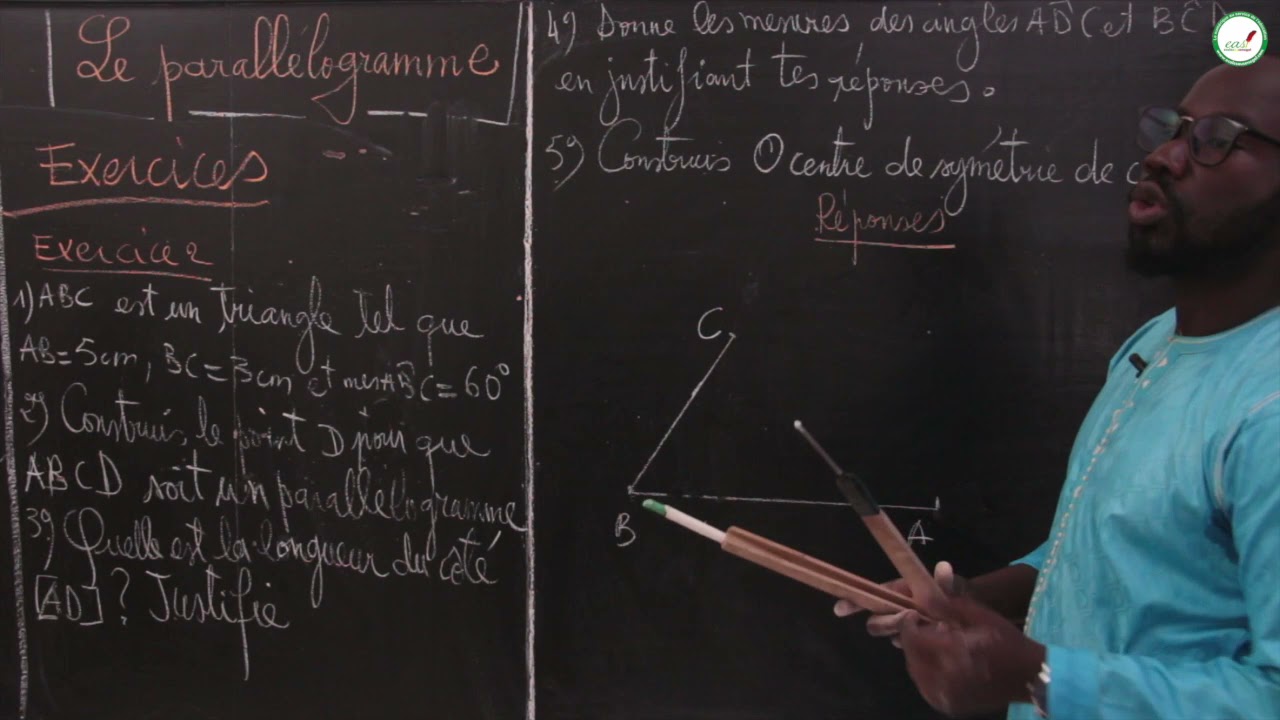 Le parallélogramme
Exercices
Exercice 2
1) ABC est un triangle tel que
AB = 5cm, BC = 3cm et mes ABC = 60°
2) Construis le point D pour que
ABCD soit un parallélogramme
3°) Quelle est la longueur du côté
[AD] ? Justifie
4°) Donne les mesures des angles ADC et BCD
en justifiant tes réponses.
5°) Construis O centre de symétrie de
Réponses
C
B
A
eas!